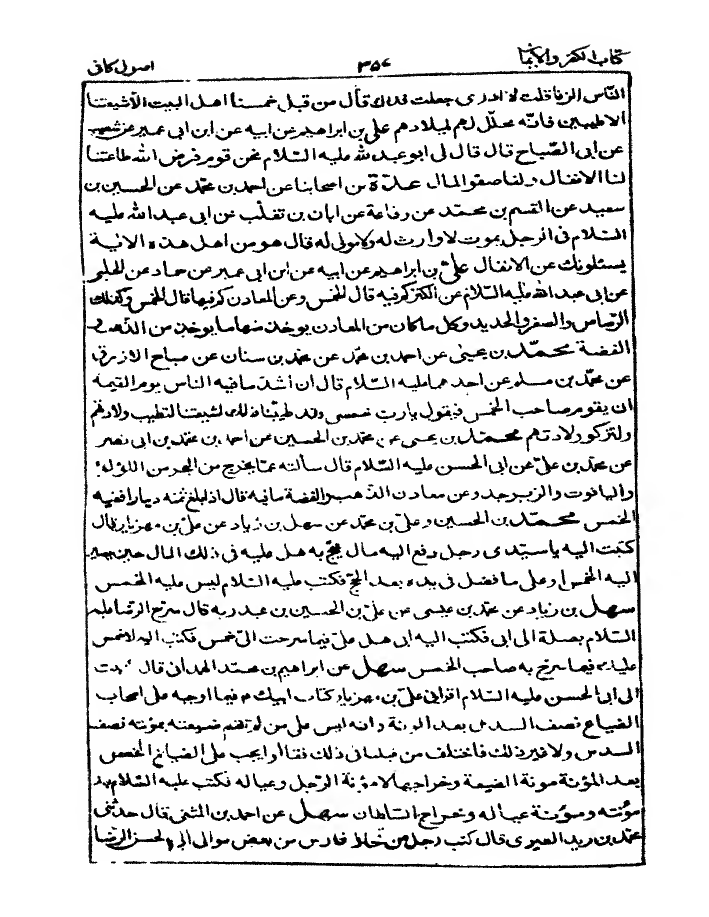 اصول کافی ۳۵۷ کتاب الکفر والایمان
النّاس الزّنا فقلت لا ادری جعلت فداك قال من قبل خمسنا اهل البیت الّا شیعتنا
الاطیبین فانّه محلّل لهم لمیلادهم علیّ بن ابراهیم عن ابیه عن ابن ابی عمیر عن شعیب
عن ابی الصّباح قال قال لی ابو عبد الله علیه السّلام نحن قوم فرض الله طاعتنا
لنا الانفال ولنا صفو المال عدّة من اصحابنا عن احمد بن محمّد عن الحسین بن
سعید عن القسم بن محمّد عن رفاعة عن ابان بن تغلب عن ابی عبد الله علیه
السّلام فی الرجل یموت لا وارث له ولا مولی له قال هو من اهل هذه الایة
یسئلونك عن الانفال علیّ بن ابراهیم عن ابیه عن ابن ابی عمیر عن حماد عن الحلبی
عن ابی عبد الله علیه السّلام عن الکنز کم فیه قال الخمس وعن المعادن کم فیها قال الخمس وکذلك
الرصاص والصفر والحدید وکل ما کان من المعادن یؤخذ منها ما یؤخذ من الذّهب و
الفضة محمّد بن یحیی عن احمد بن محمّد عن محمّد بن سنان عن صباح الازرق
عن محمّد بن مسلم عن احدهما علیه السّلام قال ان أشدّ ما فیه الناس یوم القیمة
ان یقوم صاحب الخمس فیقول یا ربّ خمسی وقد طیّبنا ذلك لشیعتنا لتطیب ولادتهم
ولتزکو ولادتهم محمّد بن یحیی عن محمّد بن الحسین عن احمد بن محمّد بن ابی نصر
عن محمّد بن علیّ عن ابی الحسن علیه السّلام قال سألته عمّا یخرج من البحر من اللؤلؤ
والیاقوت والزبرجد وعن معادن الذّهب والفضة ما فیه قال اذا بلغ ثمنه دینارا ففیه
الخمس محمّد بن الحسین وعلیّ بن محمّد عن سهل بن زیاد عن علیّ بن مهزیار قال
کتبت الیه یا سیّدی رجل دفع الیه مال یحجّ به هل علیه فی ذلك المال حین یصیر
الیه الخمس او علی ما فضل فی یده بعد الحجّ فکتب علیه السّلام لیس علیه الخمس
سهل بن زیاد عن محمّد بن عیسی عن علیّ بن الحسین بن عبد ربه قال سرّح الرّضا علیه
السّلام بصلة الی ابی فکتب الیه ابی هل علیّ فیما سرحت الیّ خمس فکتب الیه لا خمس
علیك فیما سرّح به صاحب الخمس سهل عن ابراهیم بن محمّد الهمدانی قال کتبت
الی ابی الحسن علیه السّلام اقرأنی علیّ بن مهزیار کتاب ابیك ع فیما اوجبه علی اصحاب
الضیاع نصف السدس بعد المؤنة وانه لیس علی من لم تقم ضیعته بمؤنته نصف
السدس ولا غیر ذلك فاختلف من قبلنا فی ذلك فقالوا یجب علی الضیاع الخمس
بعد المؤنة مونة الضیعة وخراجها لا مؤنة الرّجل وعیاله فکتب علیه السّلام بعد
مؤنته ومؤنة عیاله وخراج السّلطان سهل عن احمد بن المثنی قال حدثنی
محمّد بن زید الطبری قال کتب رجل من تجّار فارس من بعض موالی ابی الحسن الرّضا